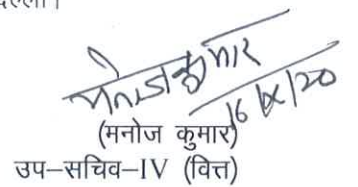 मनोज कुमार
16/x/20
(मनोज कुमार)
उप–सचिव–IV (वित्त)